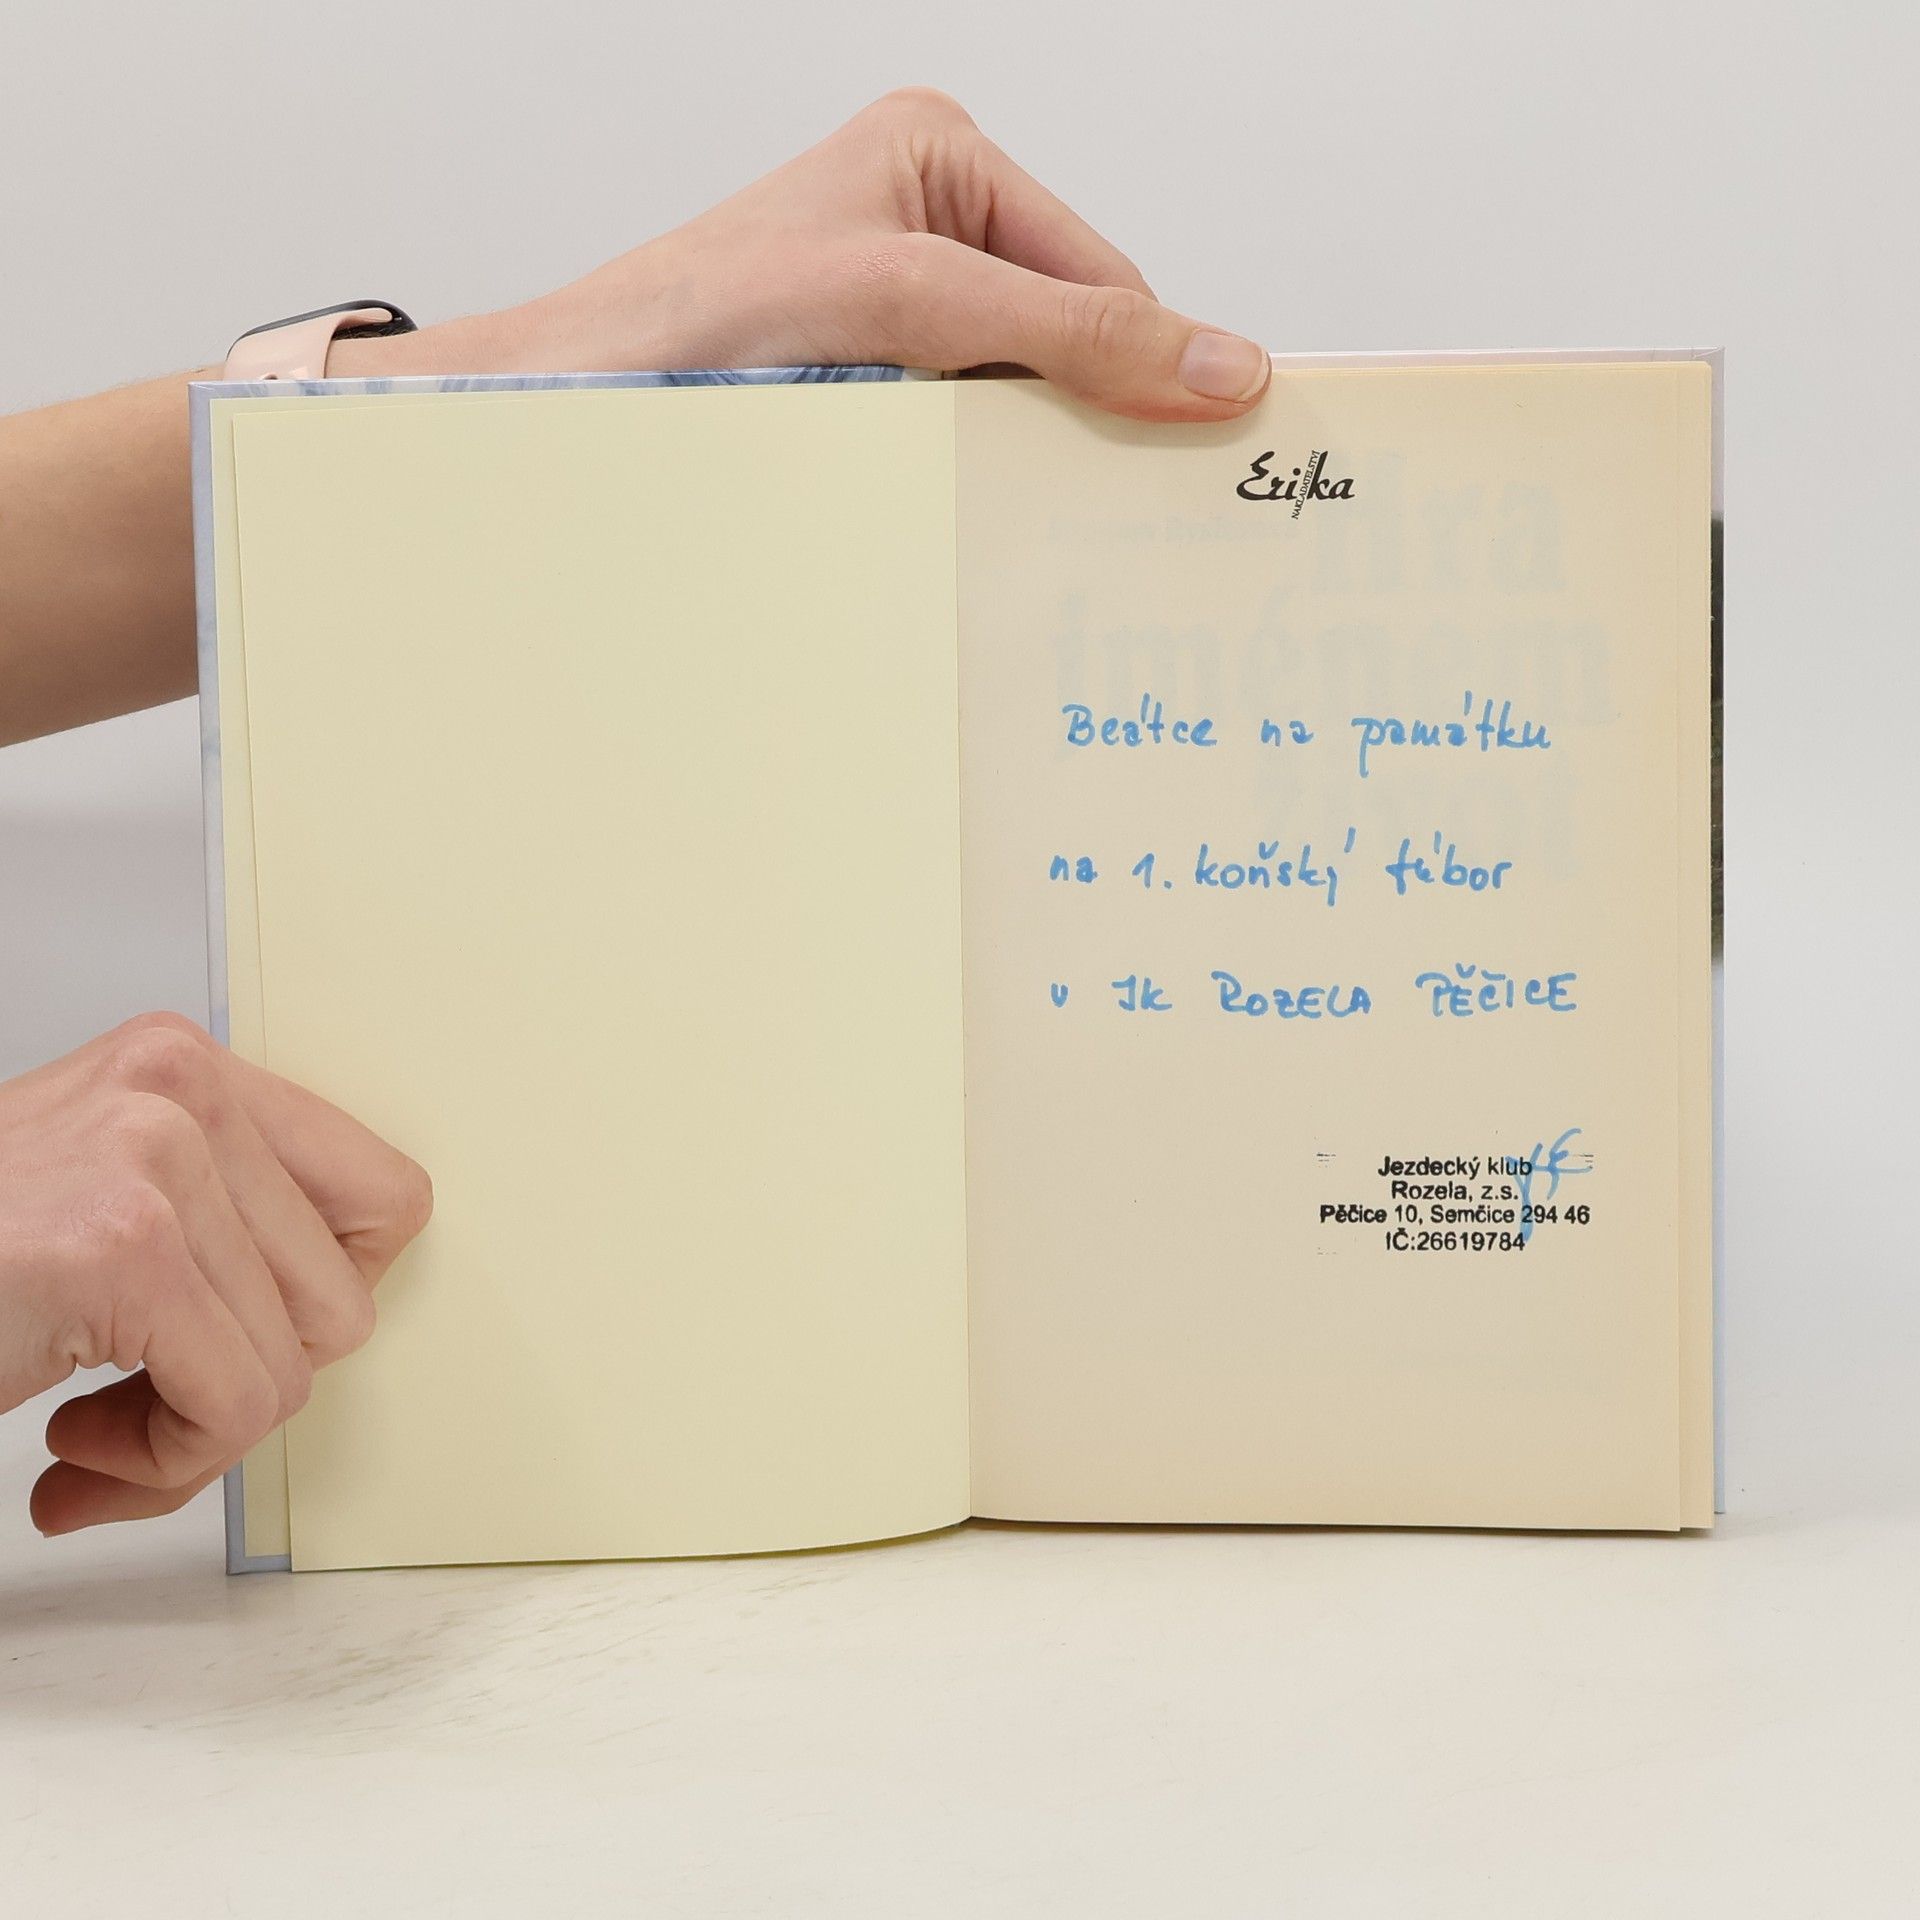 Erika
NAKLADATELSTVÍ
Beátce na památku
na 1. koňský tábor
v JK ROZELA PĚČICE
Jezdecký klub
Rozela, z.s.
Pěčice 10, Semčice 294 46
IČ:26619784